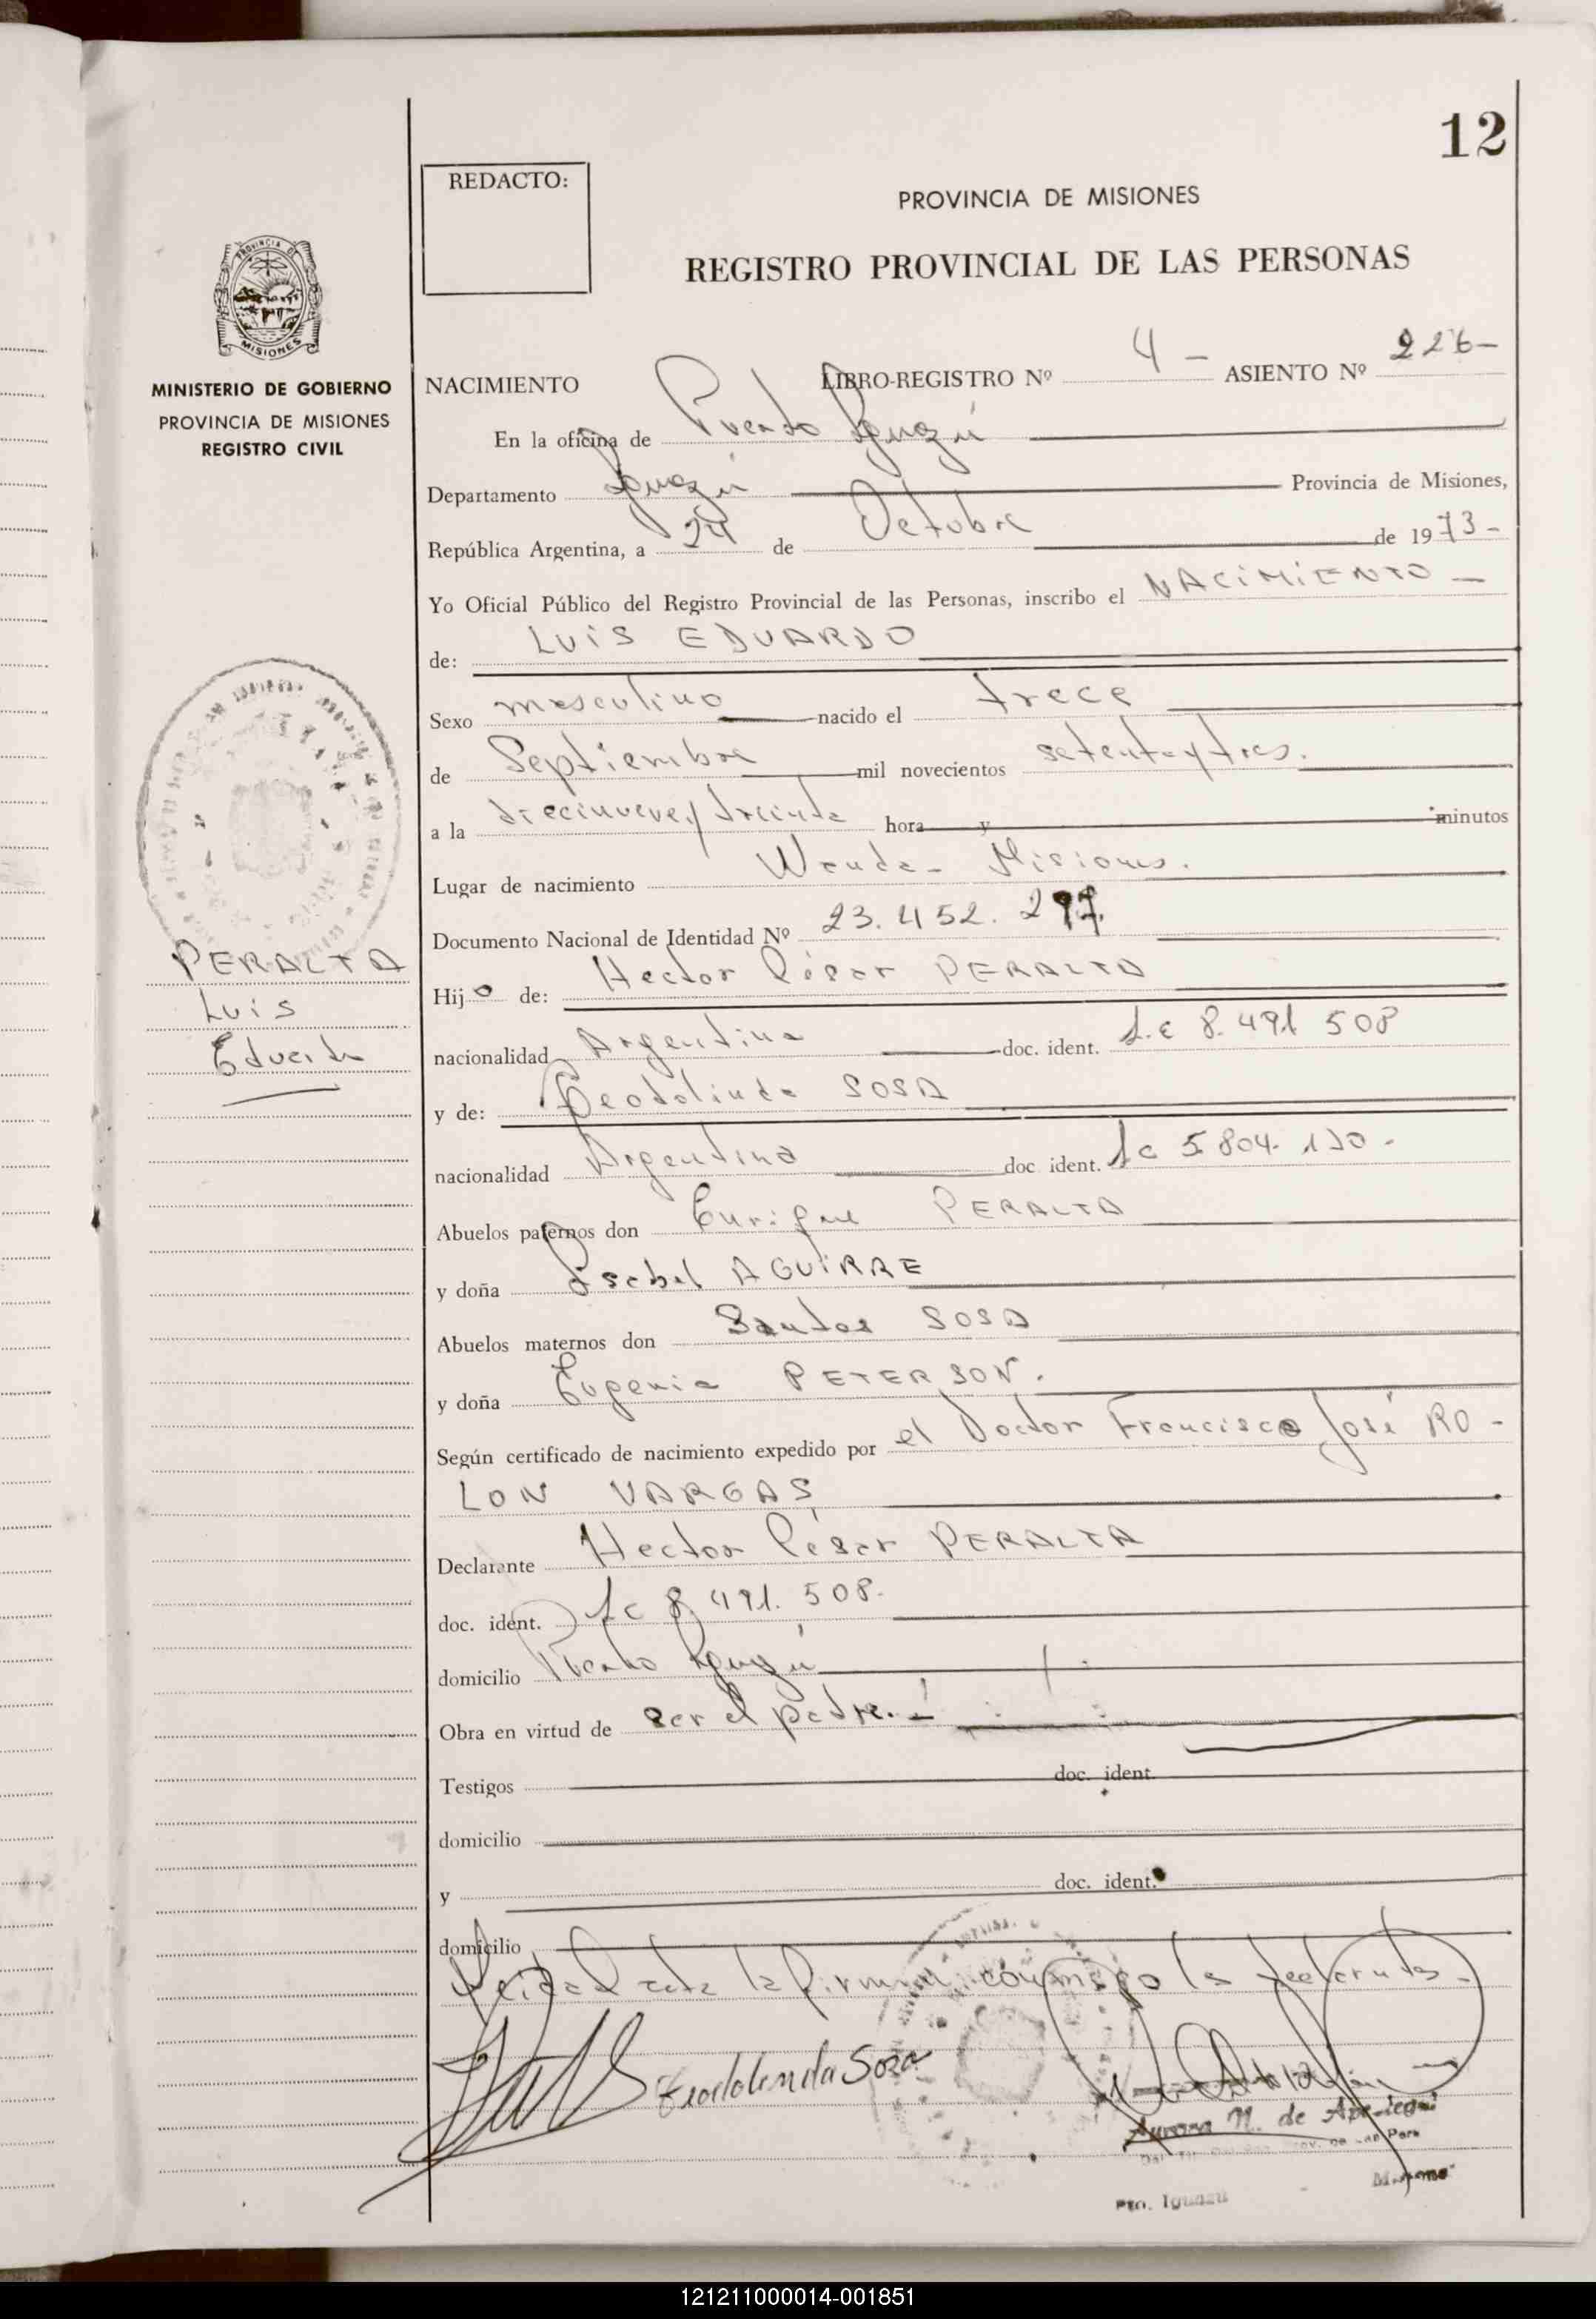 12
REDACTO:
PROVINCIA DE MISIONES
REGISTRO PROVINCIAL DE LAS PERSONAS
PROVINCIA DE
MISIONES
MINISTERIO DE GOBIERNO
PROVINCIA DE MISIONES
REGISTRO CIVIL
NACIMIENTO LIBRO-REGISTRO Nº 4 - ASIENTO Nº 226-
En la oficina de Puerto Iguazú
Departamento Iguazú Provincia de Misiones,
República Argentina, a 24 de Octubre de 1973-
Yo Oficial Público del Registro Provincial de las Personas, inscribo el NACIMIENTO -
de: LUIS EDUARDO
Sexo masculino nacido el trece
de Septiembre mil novecientos setenta y tres.
a la diecinueve y treinta hora y minutos
Lugar de nacimiento Wanda - Misiones.
Documento Nacional de Identidad Nº 23.452.297.
PERALTA
Luis
Eduardo
Hijo de: Hector César PERALTA
nacionalidad Argentina doc. ident. L.E 8.491 508
y de: Teodolinda SOSA
nacionalidad Argentina doc ident. Lc 5.804.130.-
Abuelos paternos don Enrique PERALTA
y doña Isabel AGUIRRE
Abuelos maternos don Santos SOSA
y doña Eugenia PETERSON.
Según certificado de nacimiento expedido por el Doctor Francisco José RO-
LON VARGAS
Declarante Hector César PERALTA
doc. ident. 8.491.508.
domicilio Puerto Iguazú
Obra en virtud de ser el padre.-
Testigos doc. ident.
domicilio
y doc. ident.
domicilio
Leida acta la firman conmigo los declarantes.
Teodolinda Sosa
Aurora N. de
Pto. Iguazu Misiones
121211000014-001851